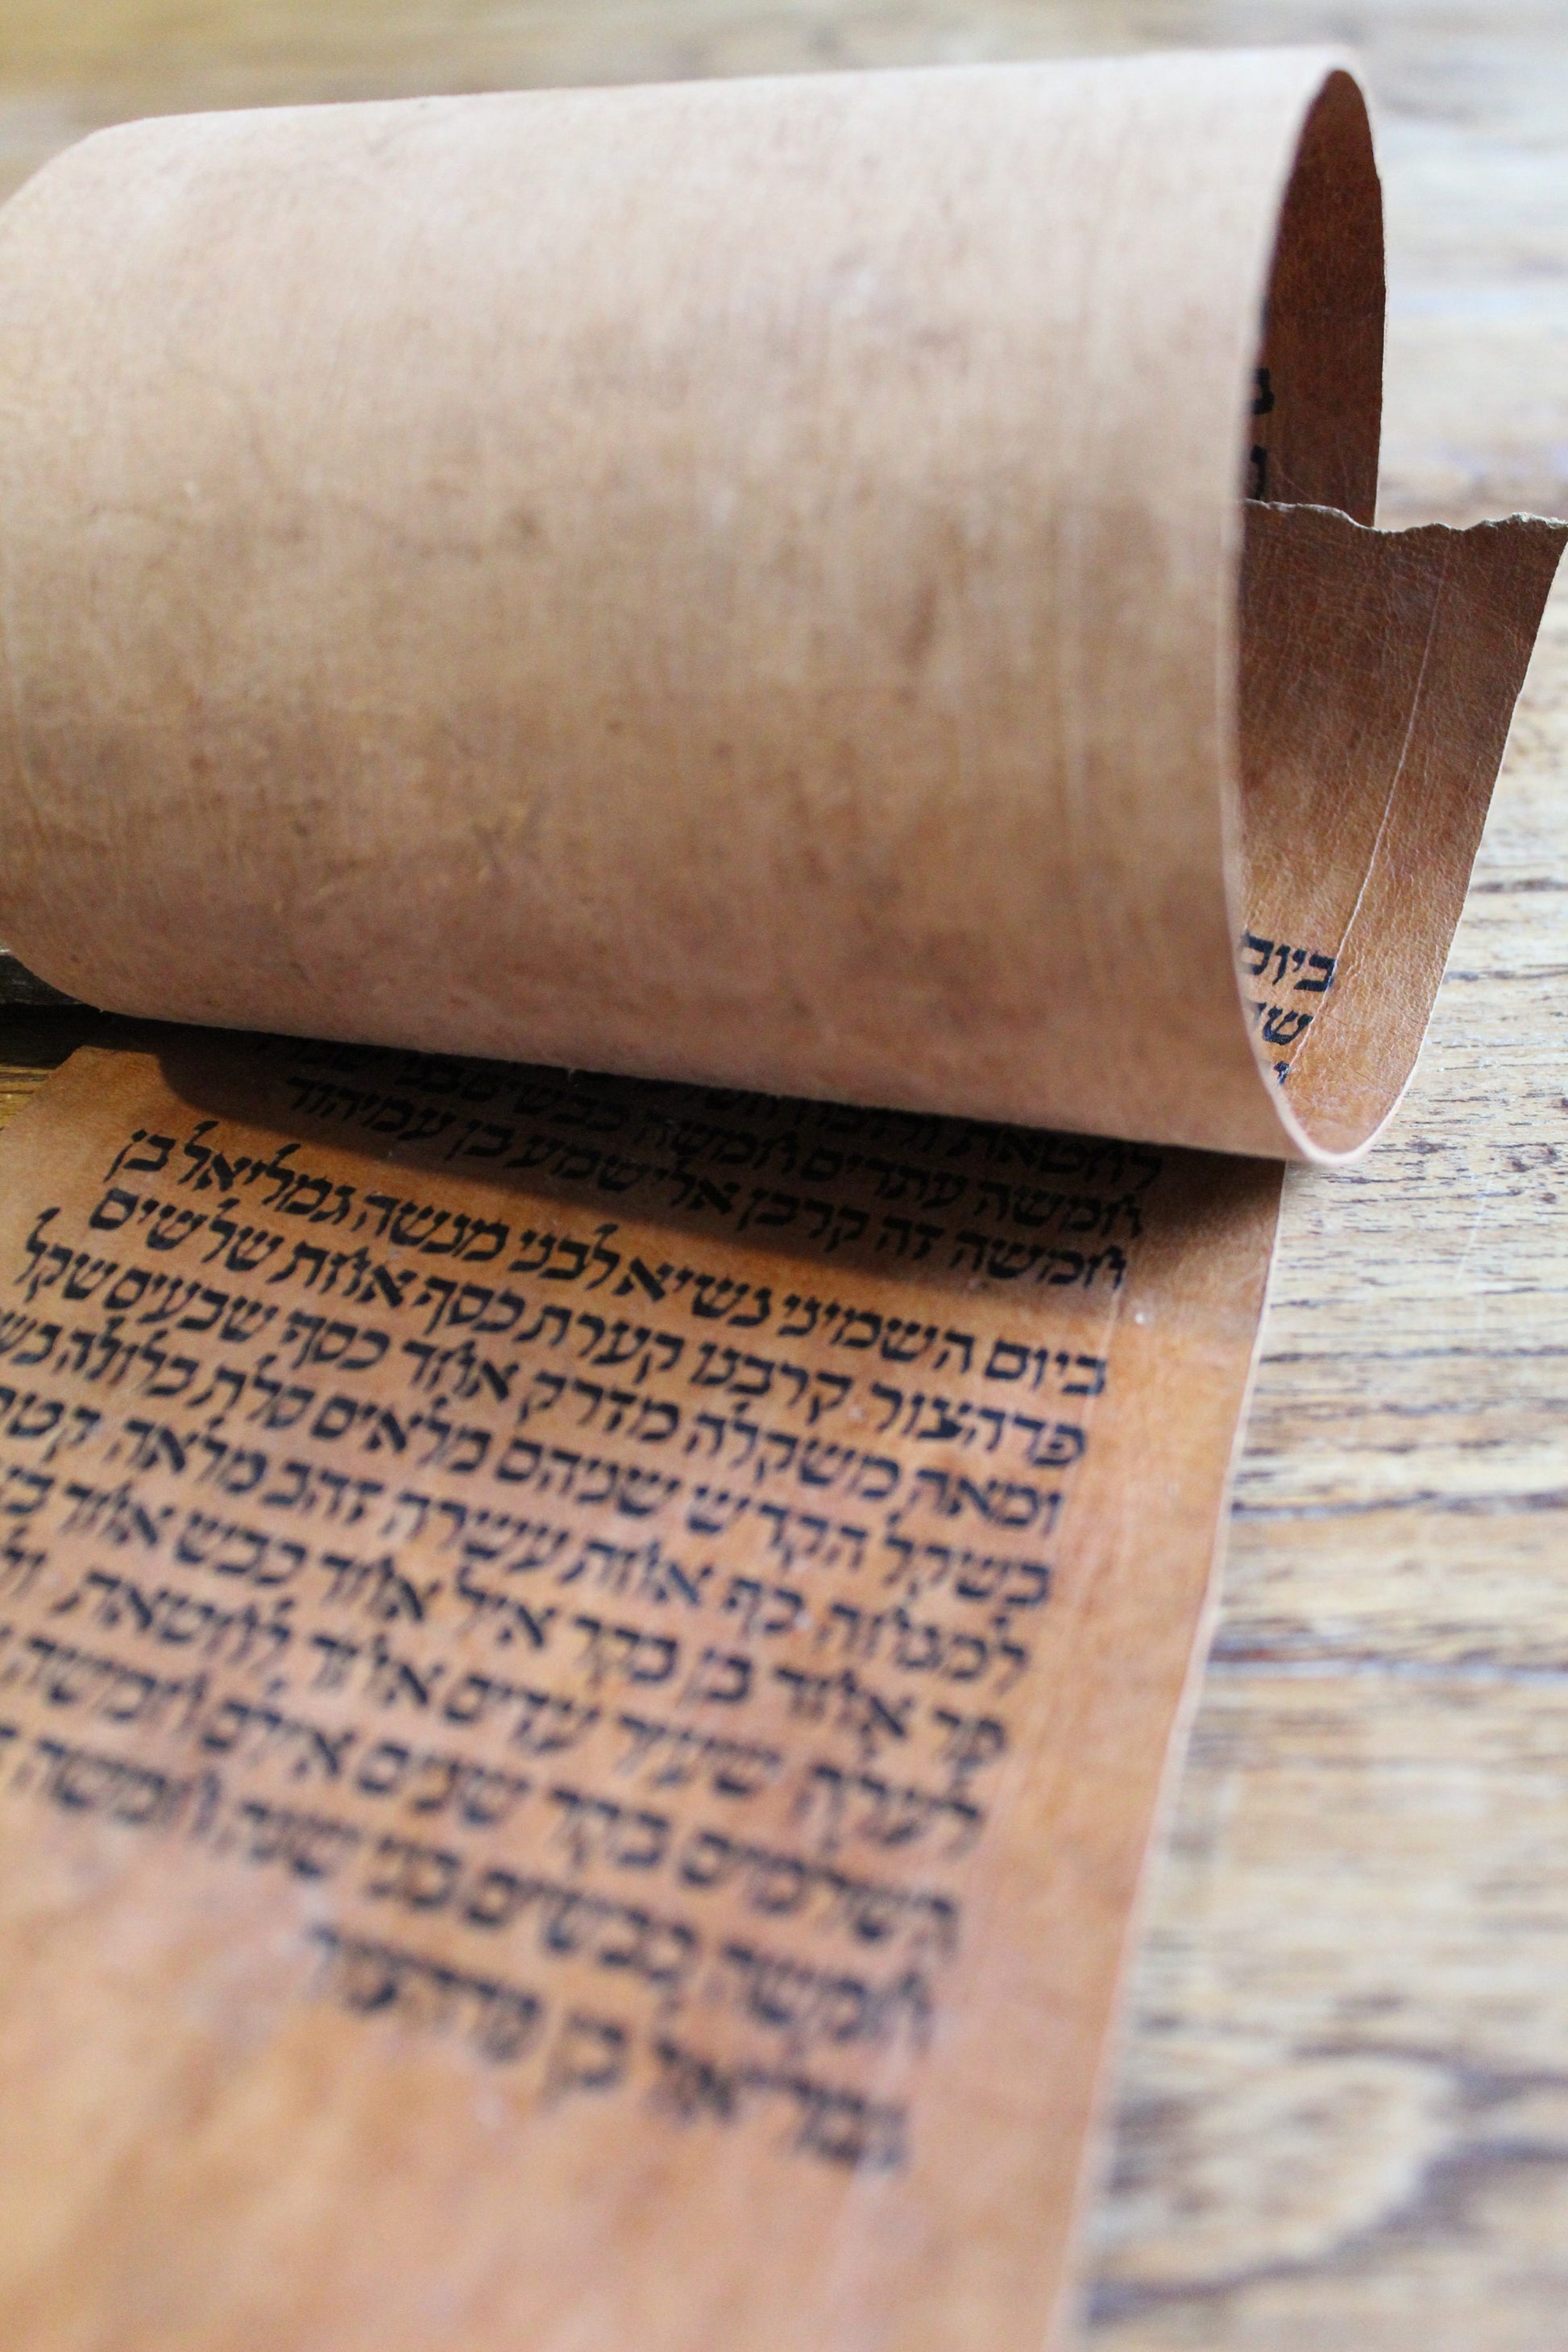 ביום
לחטאת ולזבח השלמים
חמשה עתדים חמשה כבשים בני שנה
חמשה זה קרבן אלישמע בן עמיהוד
ביום השמיני נשיא לבני מנשה גמליאל בן
פדהצור קרבנו קערת כסף אחת שלשים
ומאה משקלה מזרק אחד כסף שבעים שקל
בשקל הקדש שניהם מלאים סלת בלולה בש
למנחה כף אחת עשרה זהב מלאה קטר
פר אחד בן בקר איל אחד כבש אחד בן
לעלה שעיר עזים אחד לחטאת ול
השלמים בקר שנים אילם חמשה
חמשה כבשים בני שנה חמשה
גמליאל בן פדהצור